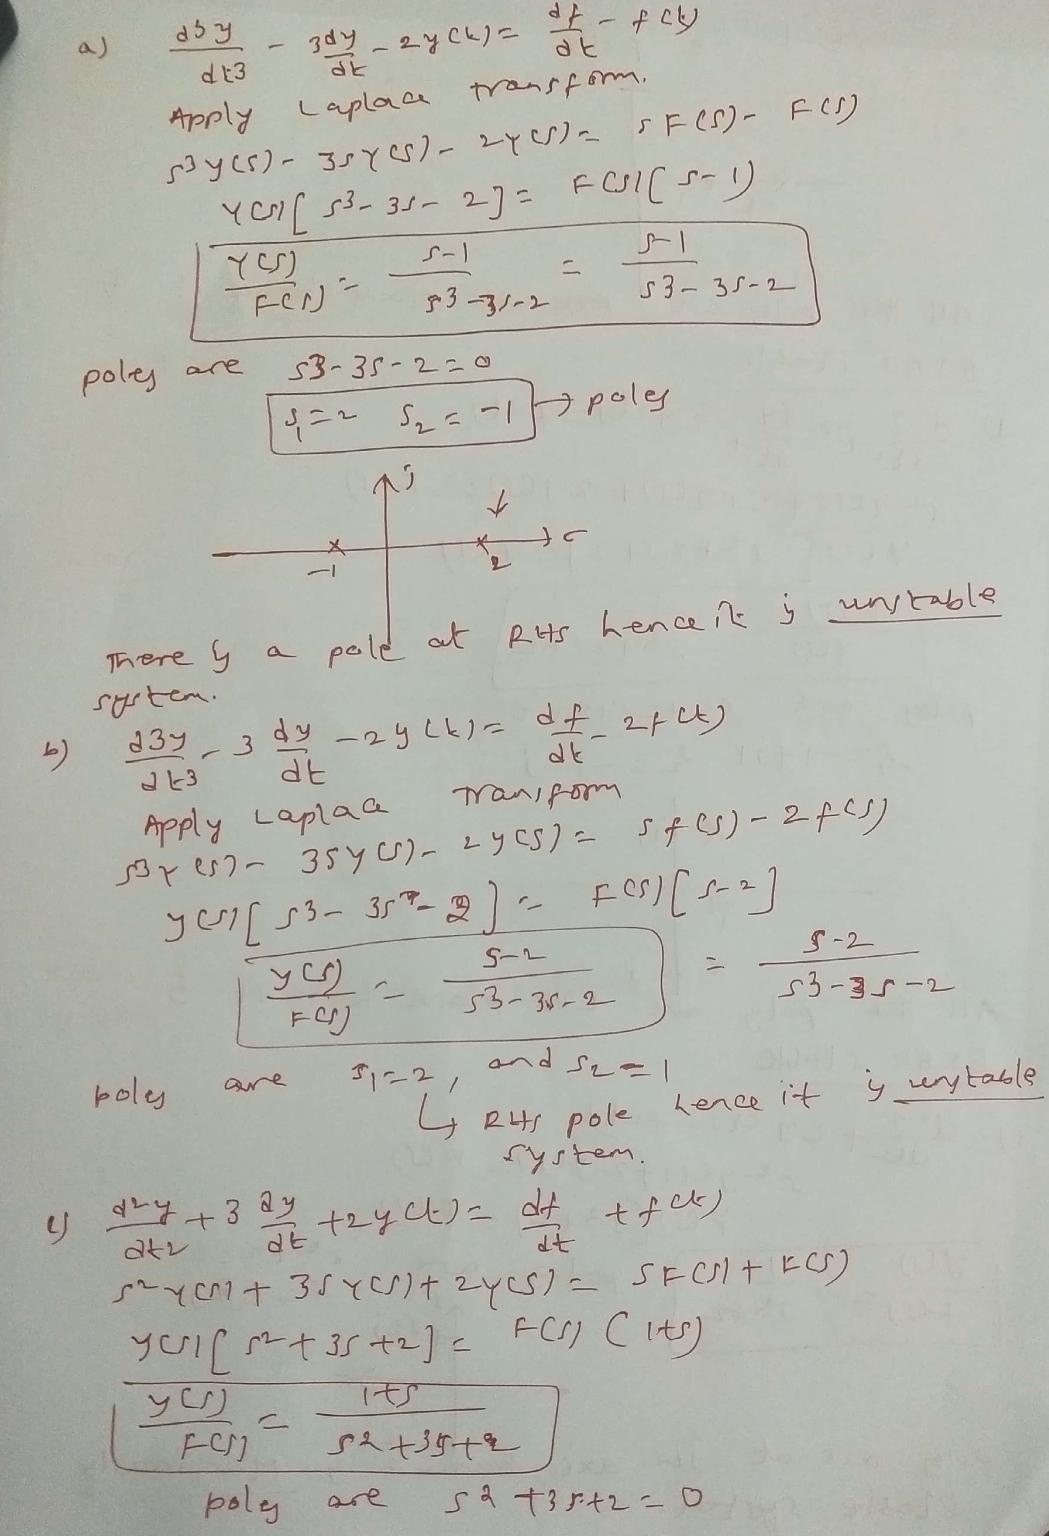 a) d3y/dt3 - 3dy/dt - 2y(t) = df/dt - f(t)
Apply Laplace transform.
s3y(s) - 3sY(s) - 2Y(s) = sF(s) - F(s)
Y(s)[s3 - 3s - 2] = F(s)(s-1)
Y(s)/F(s) = s-1/s3-3s-2 = s-1/s3-3s-2
poles are s3-3s-2=0
s1=2 s2=-1 → poles
j
-1 2 σ
There is a pole at RHS hence it is unstable
system.
b) d3y/dt3 - 3 dy/dt - 2y(t) = df/dt - 2f(t)
Apply Laplace Transform
s3Y(s) - 3sy(s) - 2y(s) = sf(s) - 2f(s)
y(s)[s3 - 3s - 2] = F(s)[s-2]
y(s)/F(s) = s-2/s3-3s-2 = s-2/s3-3s-2
poles are s1=2, and s2=1
↳ RHS pole hence it is unstable
system.
c) d2y/dt2 + 3 dy/dt + 2y(t) = df/dt + f(t)
s2Y(s) + 3sY(s) + 2Y(s) = sF(s) + F(s)
y(s)[s2 + 3s + 2] = F(s)(1+s)
y(s)/F(s) = 1+s/s2+3s+2
poles are s2+3s+2=0